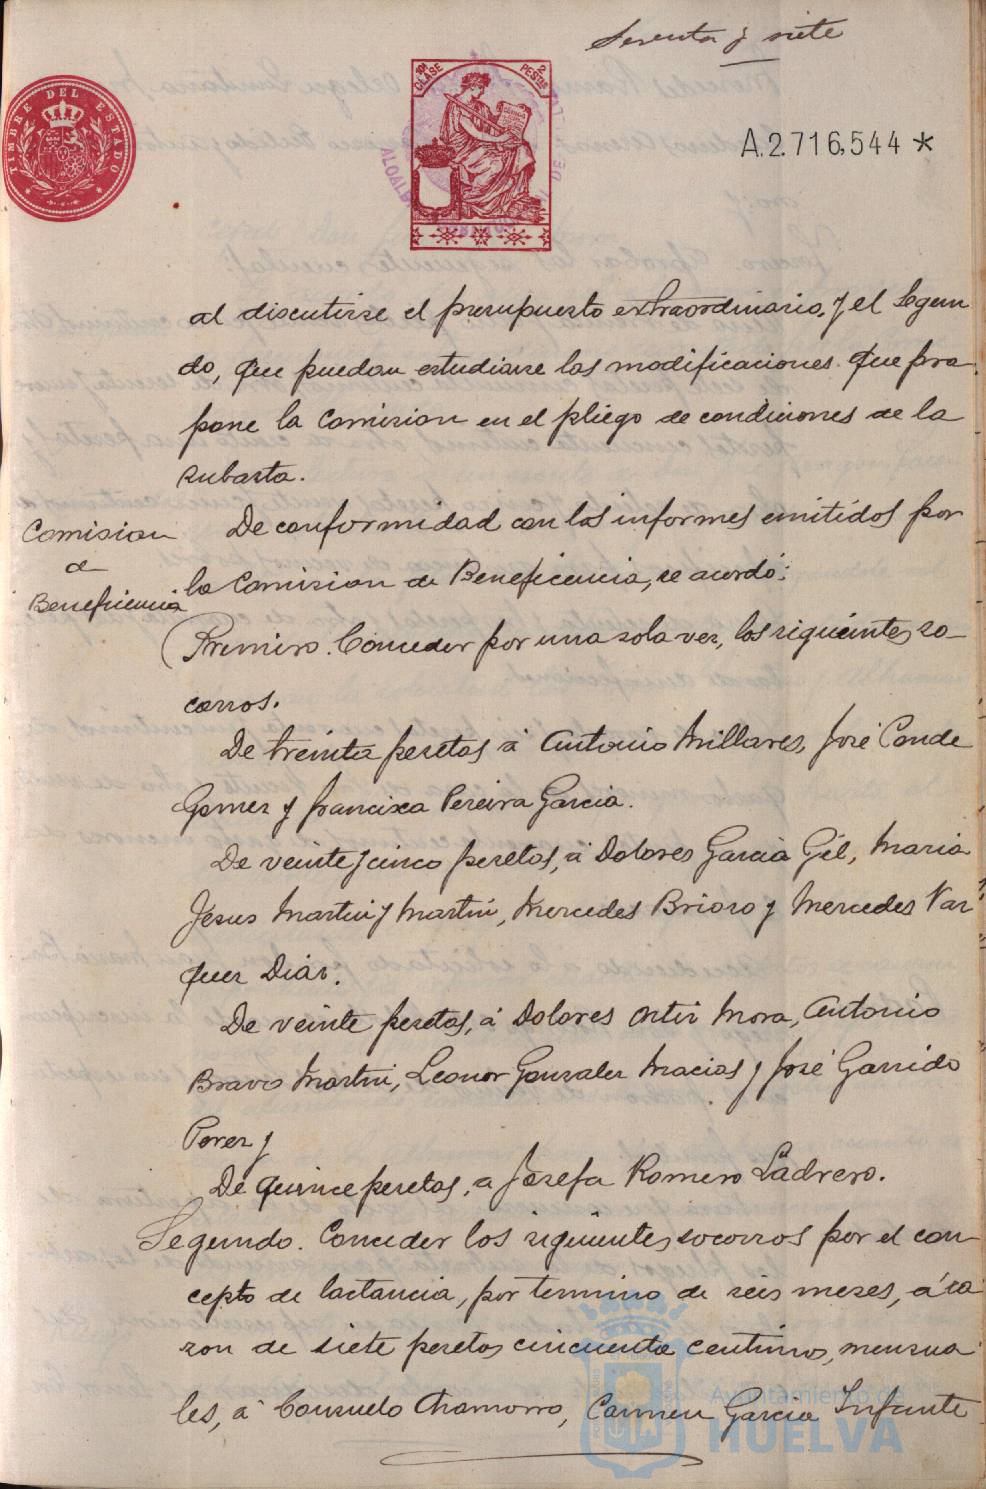 Sesenta y siete
TIMBRE DEL ESTADO
10ª CLASE
2 PESTAS
A.2.716,544 *
al discutirse el presupuesto extraordinario, y el Segun
do, que puedan estudiarse las modificaciones que pro
pone la Comision en el pliego de condiciones de la
subasta.
Comision
de
Beneficencia
De conformidad con los informes emitidos por
la Comision de Beneficencia, se acordó:
Primero. Conceder por una sola vez, los siguientes so-
corros.
De treinta pesetas á Antonio Millares, José Conde
Gomez y Francisca Pereira Garcia.
De veinte y cinco pesetas, á Dolores Garcia Gil, Maria
Jesus Martin y Martin, Mercedes Brioso y Mercedes Vaz
quez Diaz.
De veinte pesetas, á Dolores Ortiz Mora, Antonio
Bravo Martin, Leonor Gonzalez Macias y José Garrido
Perez y
De quince pesetas, a Josefa Romero Ladrero.
Segundo. Conceder los siguientes socorros por el con
cepto de lactancia, por termino de seis meses, á ra
zon de siete pesetas cincuenta centimos, mensua
les, á Consuelo Chamorro, Carmen Garcia Infante
Ayuntamiento de
HUELVA